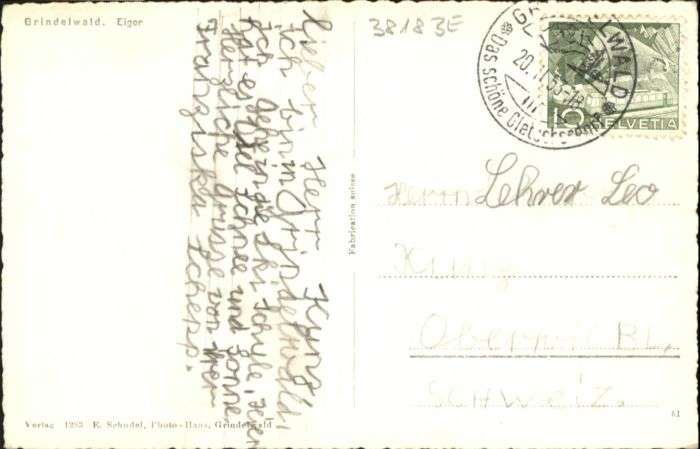 Grindelwald. Eiger
3818 3E
GRINDELWALD
20.II.53-18
Das schöne Gletscherdorf
10
HELVETIA
Lieber Herr Kunz,
ich bin in Grindelwald.
Ich geh in die Ski Schule. Hier
hat es viel Schnee und Sonne.
Herzliche Grüsse von Ihrer
Franziska Schepp.
Fabrication suisse
Herrn Lehrer Leo
Kunz
Oberwil BL,
SCHWEIZ.
Verlag 1283 E. Schudel, Photo-Haus, Grindelwald